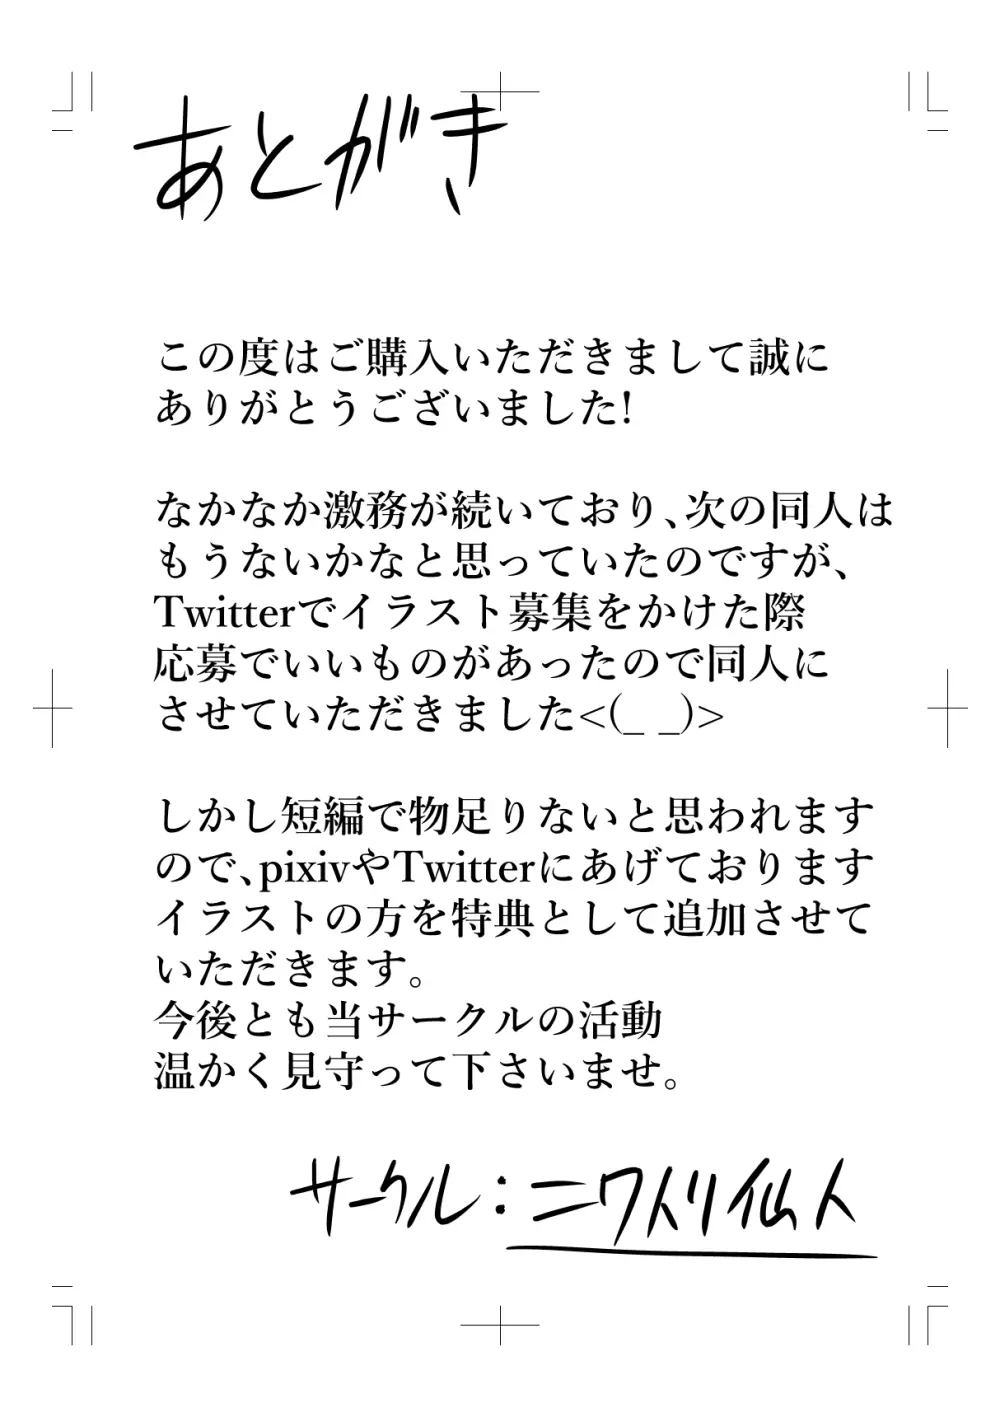 あとがき
この度はご購入いただきまして誠に
ありがとうございました!
なかなか激務が続いており、次の同人は
もうないかなと思っていたのですが、
Twitterでイラスト募集をかけた際
応募でいいものがあったので同人に
させていただきました<(_ _)>
しかし短編で物足りないと思われます
ので、pixivやTwitterにあげております
イラストの方を特典として追加させて
いただきます。
今後とも当サークルの活動
温かく見守って下さいませ。
サークル：ニワトリ仙人